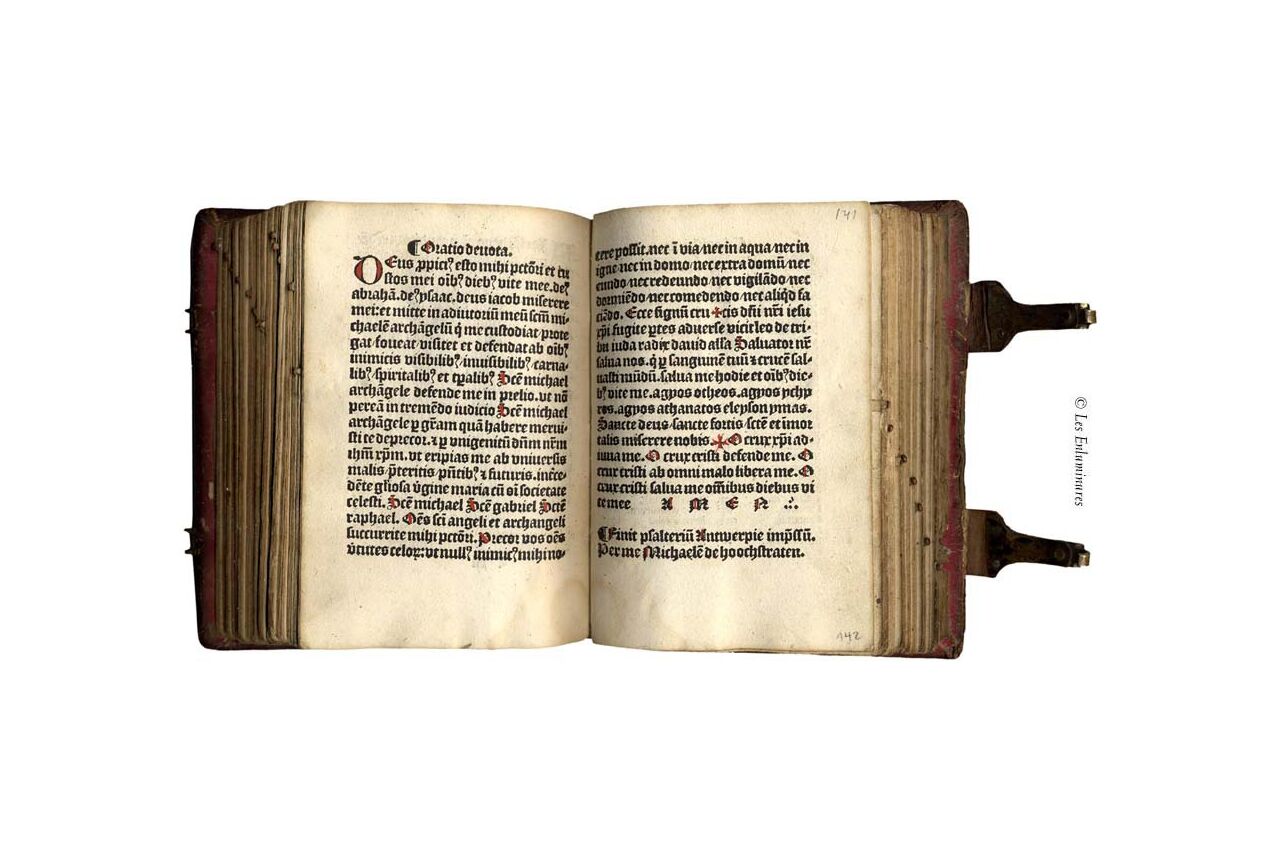 ¶ Oratio deuota.
DEus ꝓpici⁹ esto mihi pctōri et cu
stos mei oīb⁹ dieb⁹ vite mee. de⁹
abrahā. de⁹ ysaac. deus iacob miserere
mei: et mitte in adiutoriū meū scm̄ mi-
chaelē archāgelū q̇ me custodiat prote
gat foueat/visitet et defendat ab oīb⁹
inimicis visibilib⁹/inuisibilib⁹ carna-
lib⁹/spiritalib⁹ et tp̄alib⁹ Scē michael
archāgele defende me in p̄elio. vt nō
pereā in tremēdo iudicio Scē michael
archāgele ꝑ gr̄am quā habere merui-
sti te deprecor. ⁊ ꝑ vnigenitū dn̄m nr̄m
ihm̄ xp̄m. vt eripias me ab vniuersis
malis/p̄teritis/pn̄tib⁹ ⁊ futuris. ītercē-
dēte gl̄iosa v̄gine maria cū oī societate
celesti. Scē michael Scē gabriel Scē
raphael. Oēs sci angeli et archangeli
succurrite mihi pctōri. Precor vos oēs
v̄tutes celoꝝ: vt null⁹ inimic⁹ mihi no-
cere possit. nec ī via/nec in aqua/nec in
igne/nec in domo/nec extra domū/nec
eundo/nec redeundo/nec vigilādo/nec
dormiēdo/nec comedendo/nec aliqd fa
ciēdo. Ecce signū cru ✠ cis dn̄i nr̄i iesu
xp̄i fugite ꝑtes aduerse vicit leo de tri-
bu iuda radix dauid alla Saluator nr̄
salua nos. q̇ ꝑ sanguinē tuū ⁊ crucē sal-
uasti mūdū. salua me hodie et oīb⁹ die-
b⁹ vite mee. agyos otheos. agyos ychy
ros. agyos athanatos eleyson ymas.
Sancte deus/sancte fortis/sctē et imor
talis miserere nobis. ✠ O crux xp̄i ad-
iuua me. O crux cristi defende me. O
crux cristi ab omni malo libera me. O
crux cristi salua me om̄ibus diebus vi
te mee A M E N
¶ Finit psalteriū Antwerpie imp̄ssū.
Per me Michaelē de hoochstraten.
141
142
© Les Enluminures